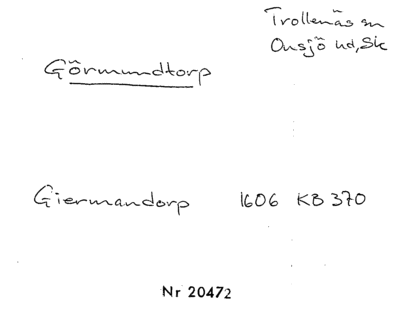 Trollenäs sn
Onsjö hd, Sk
Görmundtorp
Giermandorp 1606 KB 370
Nr 20472